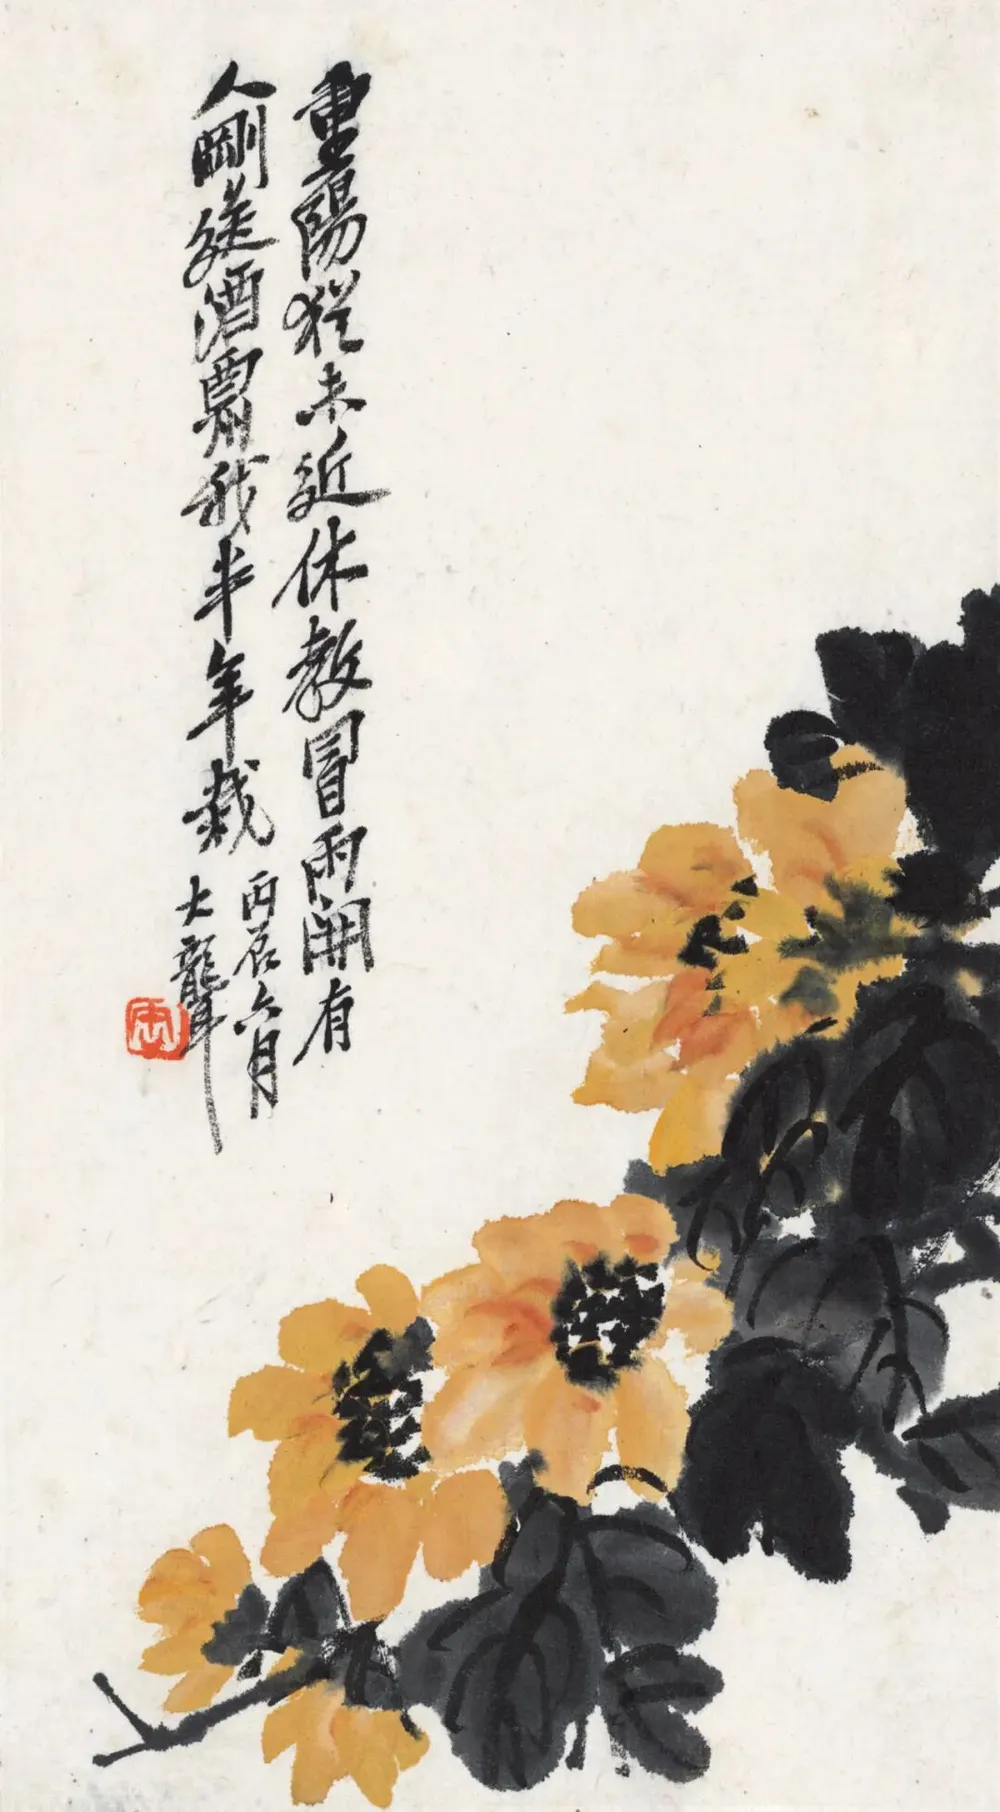 重陽猶未近休教冒雨開有
人剛送酒我半年栽
丙辰六月
大聾
缶